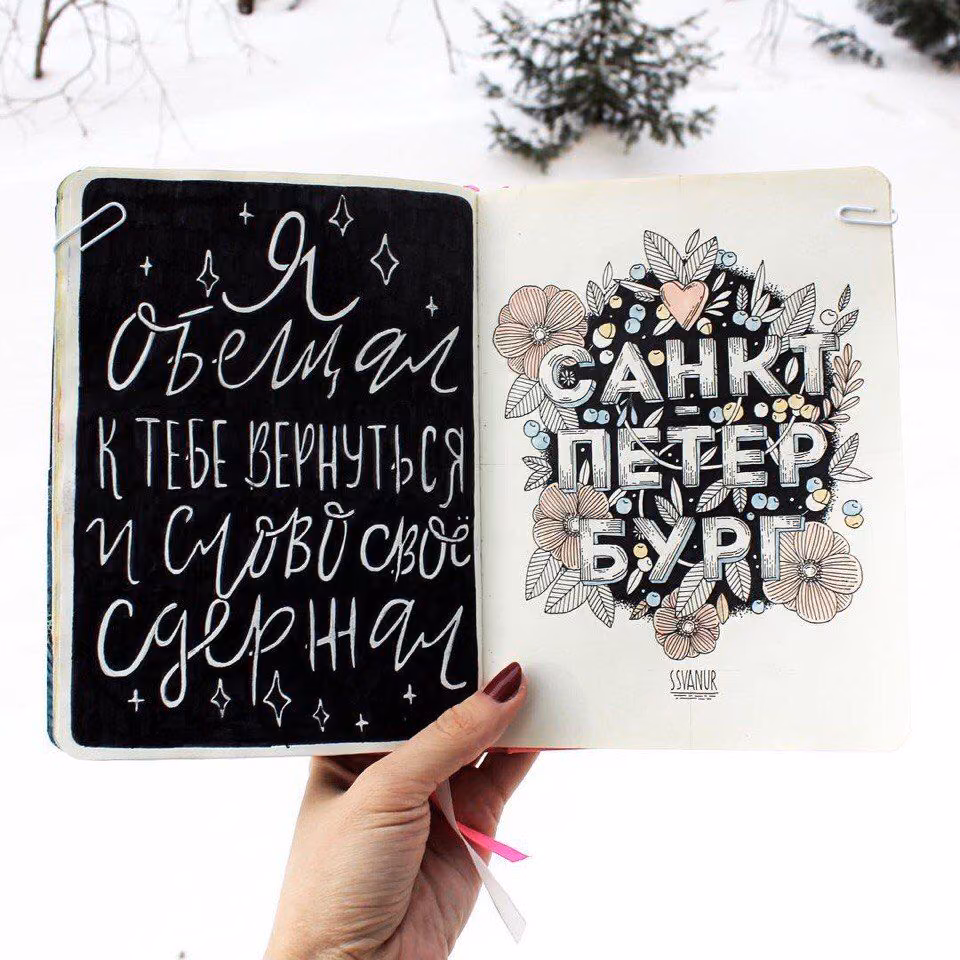 Я
Обещал
К ТЕБЕ ВЕРНУТЬСЯ
и Слово своё
Сдержал
САНКТ
-
ПЕТЕР
БУРГ
SSVANUR